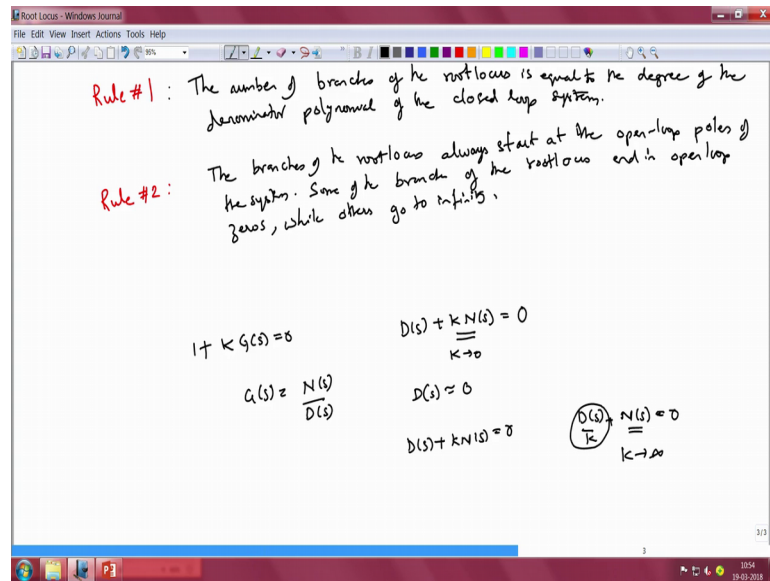 Root Locus - Windows Journal
File Edit View Insert Actions Tools Help
96%
Rule #1 : The number of branches of the root locus is equal to the degree of the
denominator polynomial of the closed loop system.
Rule #2 : The branches of the root locus always start at the open-loop poles of
the system. Some of the branch of the root locus end in open loop
zeros, while others go to infinity.
1 + K G(s) = 0
D(s) + K N(s) = 0
K→0
G(s) = N(s)/D(s)
D(s) ≈ 0
D(s) + K N(s) = 0
D(s)/K + N(s) = 0
K→∞
3/3
3
10:54
19-03-2018